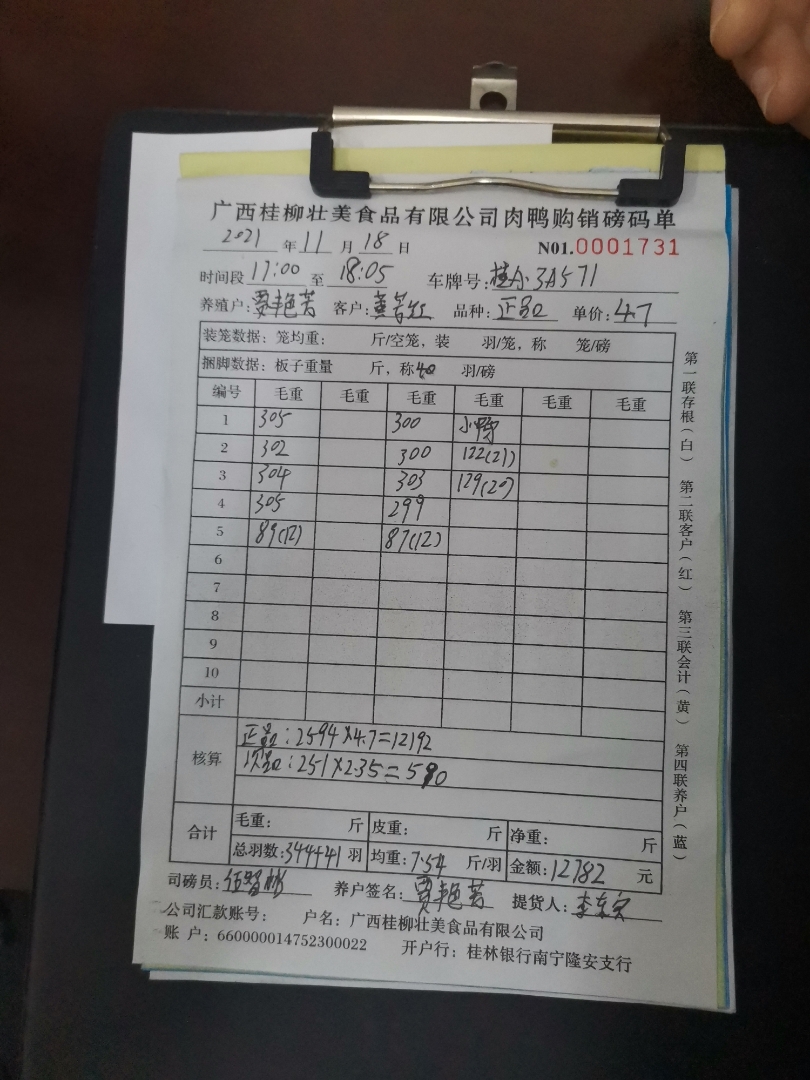 广西桂柳壮美食品有限公司肉鸭购销磅码单
2021 年 11 月 18 日 N01.0001731
时间段 17:00 至 18:05 车牌号: 3A571
养殖户:贾艳芳 客户: 品种:正品 单价:4.7
装笼数据:笼均重: 斤/空笼,装 羽/笼,称 笼/磅
捆脚数据:板子重量 斤,称40 羽/磅
编号 毛重 毛重 毛重 毛重 毛重 毛重
1 305 300 小鸭
2 302 300 122(21)
3 304 303 129(20)
4 305 299
5 89(12) 87(12)
6
7
8
9
10
小计
核算 正品:2594×4.7=12192
次品:251×2.35=590
合计 毛重: 斤 皮重: 斤 净重: 斤
总羽数:344+41 羽 均重:7.54 斤/羽 金额:12782 元
司磅员: 养户签名:贾艳芳 提货人:
公司汇款账号: 户名:广西桂柳壮美食品有限公司
账 户:660000014752300022 开户行:桂林银行南宁隆安支行
第一联存根(白) 第二联客户(红) 第三联会计(黄) 第四联养户(蓝)